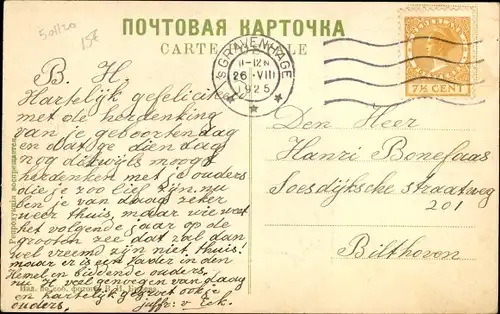 50/120
15£
ПОЧТОВАЯ КАРТОЧКА
CARTE POSTALE
'S GRAVENHAGE
11-12 N
26.VIII
1925
NEDERLAND
7½ CENT
B. H.
Hartelijk gefelicit
met de herdenking
van je geboortendag
en dat ge dien dag
nog dikwijls moogt
herdenken met je ouders
die je zoo lief zijn, nu
ben je van daag zeker
weer thuis, maar wie weet
het volgende jaar op de
grooten zee dat zal dan
wel vreemd zijn niet thuis!
maar er is een Vader in den
Hemel en biddende ouders,
nu H veel genoegen van daag
en hartelijk gegroet ook je
ouders, juffr. v Eck.
Den Heer
Hanri Bonefaas
Soesdijksche straatweg
201
Bilthoven
Репродукція воспрещается.
Изд. по соб. фотогр.